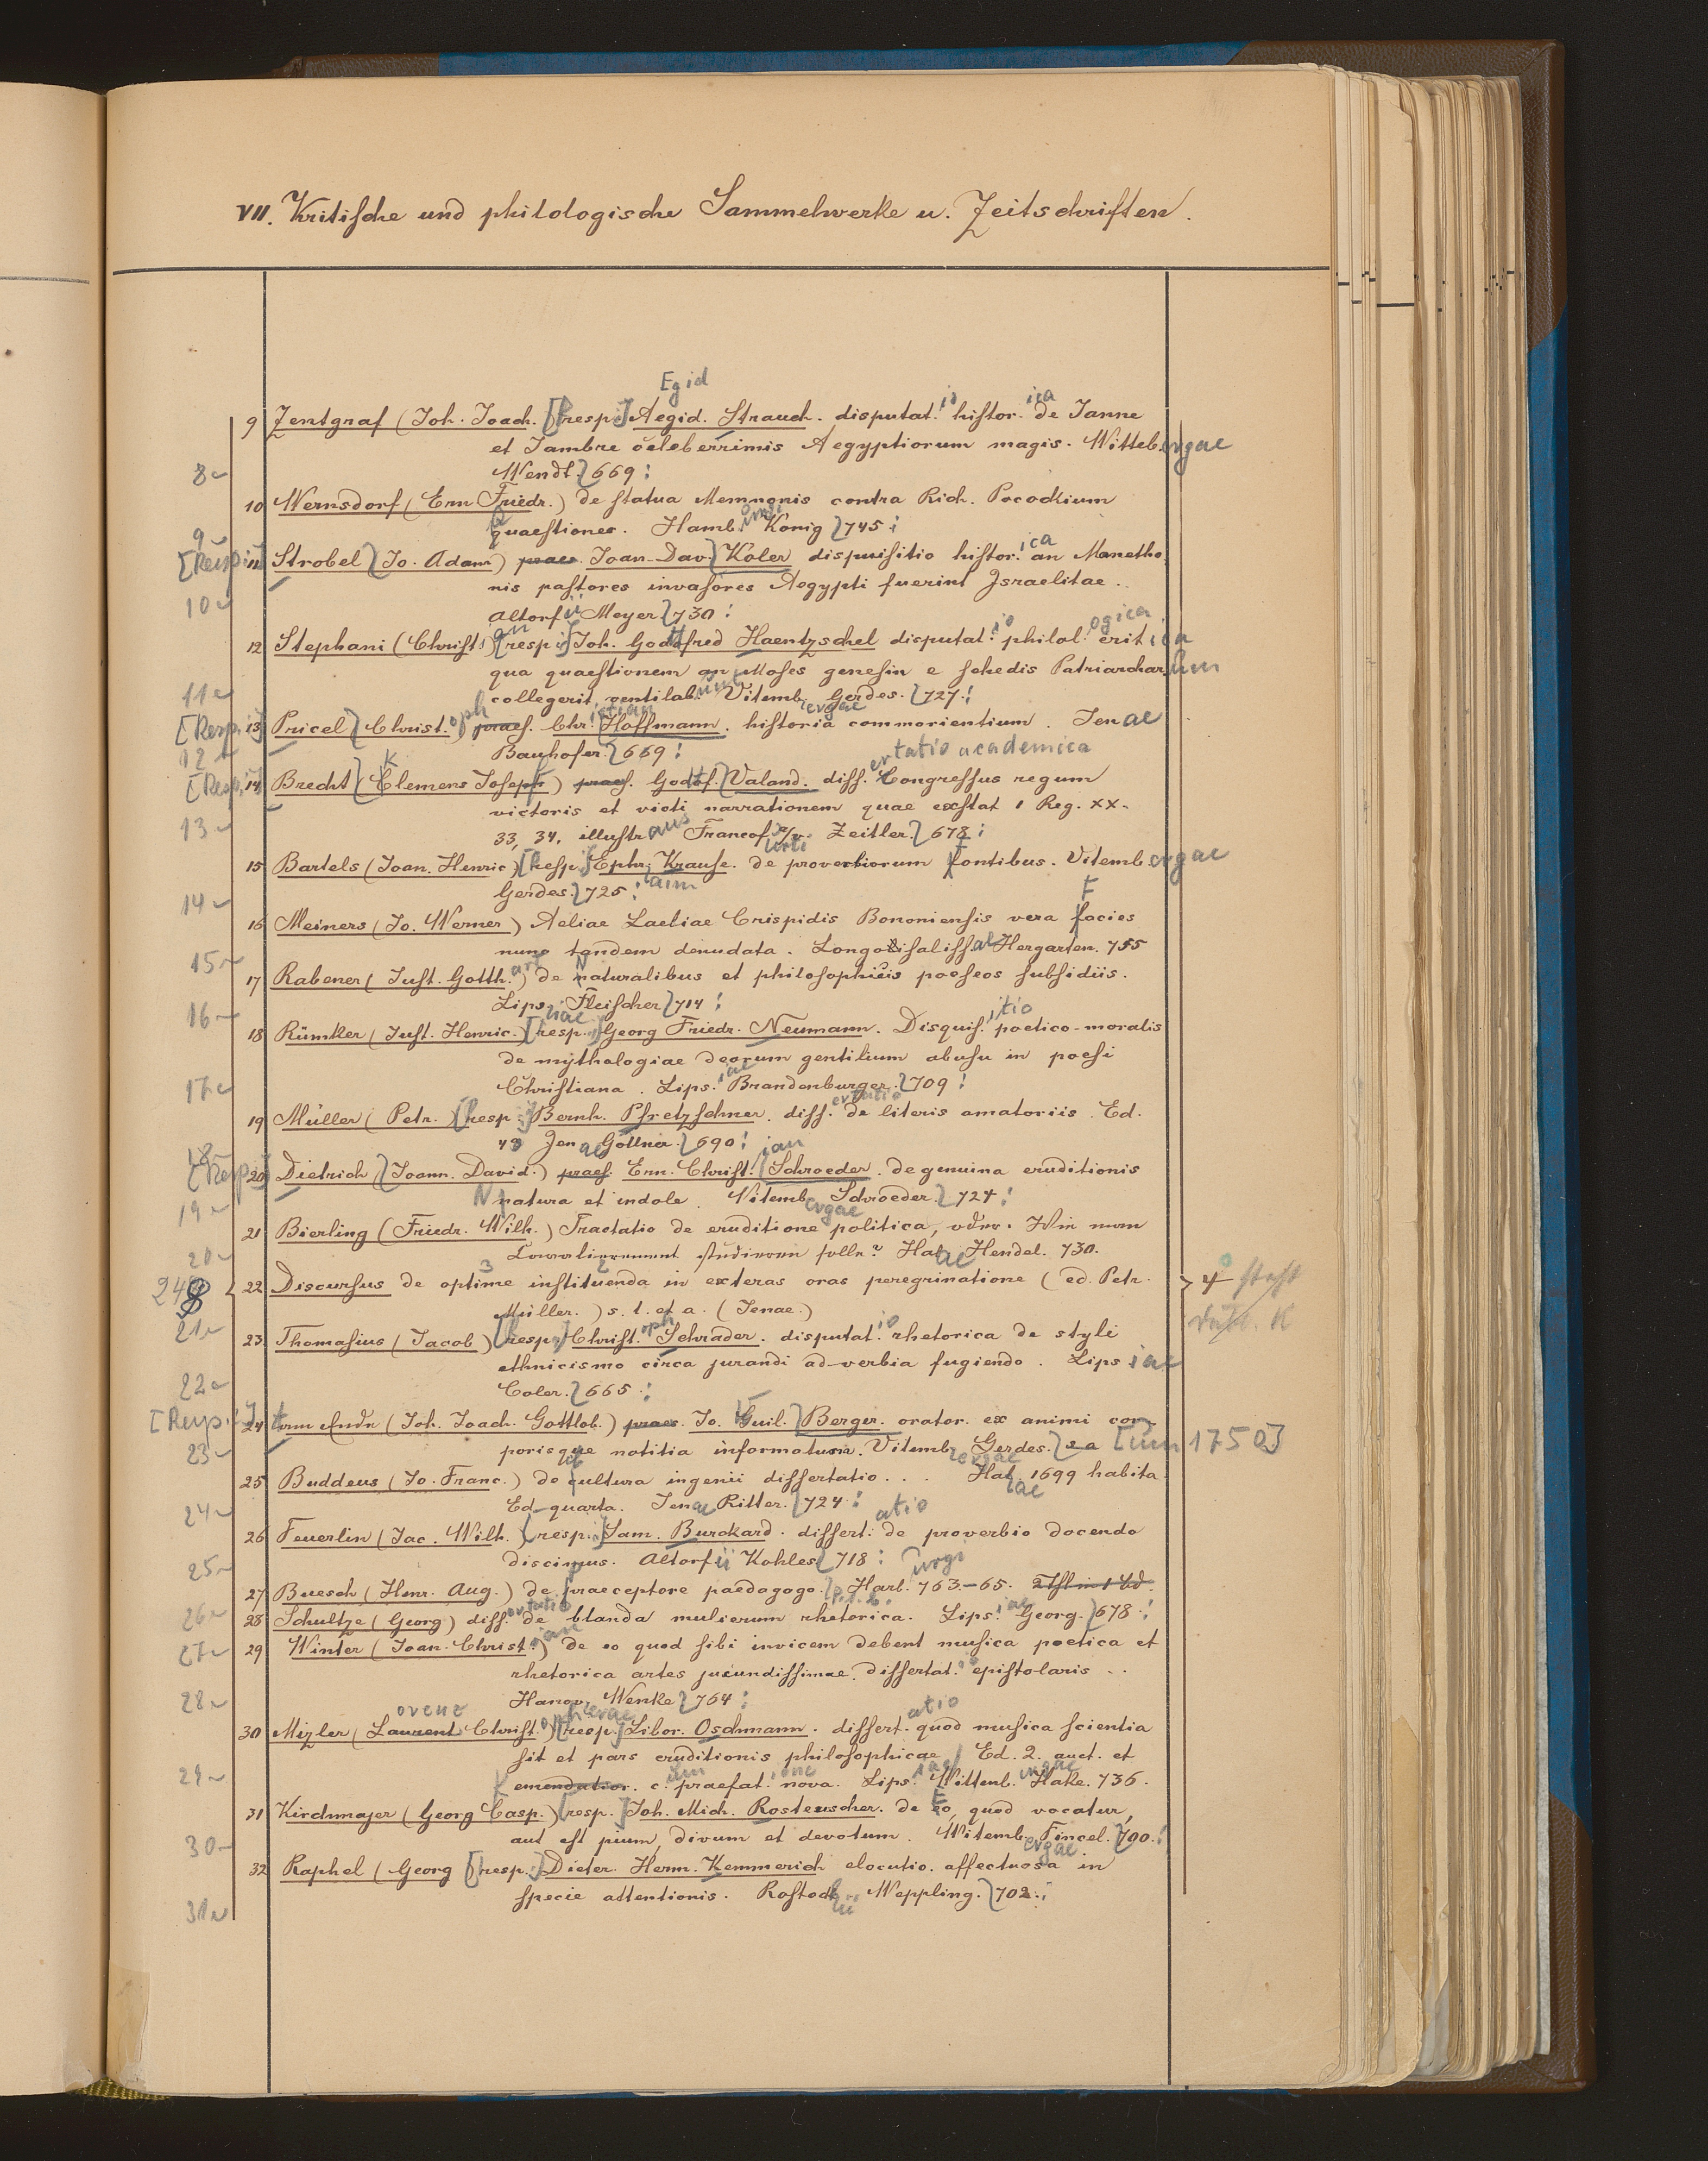 VII. Kritische und philologische Sammelwerke u. Zeitschriften.
Egid
9 Zentgraf (Joh. Joach. [resp.] Aegid. Strauch. disputatio historica de Janne
et Jambre celeberrimis Aegyptiorum magis. Wittebergae
8 Wendt. 669.
10 Wernsdorf (Ern Friedr.) de statua Memnonis contra Rich. Pocockium
9 quaestiones. Hamb. König 745.
[Resp.] 11 Strobel (Jo. Adam) praes. Joan. Dav. Koler disquisitio historica an Manetho
nis pastores invasores Aegypti fuerint Israelitae.
10 Altorfii Meyer 730.
12 Stephani (Christian) [resp.] Joh. Gottfred Haentzschel disputatio philologica critica
qua quaestionem an Moses genesin e schedis Patriarcharum
11 collegerit, ventilab. Vitembergae Gerdes. 727.
[Resp.] 13 Pricel (Christoph) praes. Christian Hoffmann. historia commorientium. Jenae
12 Bauhofer. 669.
[Resp.] 14 Brecht (Clemens Joseph) praes. Gottf. Valand. dissertatio academica Congressus regum
victoris et victi narrationem quae exstat 1 Reg. XX.
13 33, 34. illustraus Francof. a/v. Zeitler. 678.
15 Bartels (Joan. Henric) [Resp.] Ephraim Krause. de proverbiorum fontibus. Vitembergae
14 Gerdes. 725.
16 Meiners (Jo. Werner) Aeliae Laeliae Crispidis Bononiensis vera facies
15 nunc tandem denudata. Longosalissae Hergarten. 755
17 Rabener (Just. Gotth.) de naturalibus et philosophicis poeseos subsidiis.
16 Lipsiae Fleischer 714.
18 Rümker (Just. Henric.) [resp.] Georg Friedr. Neumann. Disquisitio poetico-moralis
de mythologiae deorum gentilium abusu in poesi
17 Christiana. Lipsiae Brandenburger. 709.
19 Müller (Petr.) [resp.] Bernh. Pfretzschner. dissertatio de literis amatoriis. Ed.
18 Jenae Göllner. 690.
[Resp.] 20 Dietrich (Joann. David.) praes. Ern. Christian Schroeder. de genuina eruditionis
19 natura et indole. Vitembergae Schroeder. 724.
21 Bierling (Friedr. Wilh.) Tractatio de eruditione politica, oder: Wie man
20 studieren solle? Halae Hendel. 730.
22 Discursus de optime instituenda in exteras oras peregrinatione (ed. Petr.
Müller.) s. l. et a. (Jenae.)
21 23 Thomasius (Jacob) [resp.] Christoph Schrader. disputatio rhetorica de styli
ethnicismo circa jurandi ad-verbia fugiendo. Lipsiae
22 Coler. 665.
[Resp.] 24 am Ende (Joh. Joach. Gottlob.) praes. Jo. Guil. Berger. orator. ex animi cor-
23 porisque notitia informatum. Vitembergae Gerdes. s a [um 1750]
25 Buddeus (Jo. Franc.) de cultura ingenii dissertatio . . . Halae 1699 habita.
24 Ed-quarta. Jenae Ritter. 724.
26 Feuerlin (Jac. Wilh.) [resp.] Sam. Burckard. dissertatio de proverbio docendo
25 discimus. Altorfii Kohles 718.
27 Buesch (Henr. Aug.) de praeceptore paedagogo. Harb. 763-65.
26 28 Schultze (Georg) dissertatio de blanda mulierum rhetorica. Lipsiae Georg. 678.
27 29 Winter (Joan. Christian) de eo quod sibi invicem debent musica poetica et
rhetorica artes jucundissimae dissertatio epistolaris . .
28 Hanoverae Wenke 764.
30 Mizler (Laurent Christoph) [resp.] Libor. Oschmann. dissertatio quod musica scientia
sit et pars eruditionis philosophicae. Ed. 2. auct. et
29 emendatior. c. praefatione nova. Lipsiae Wittenbergae Hake. 736.
31 Kirchmajer (Georg Casp.) [resp.] Joh. Mich. Rosteuscher. de Eo, quod vocatur,
30 aut est pium, divum et devotum. Witembergae Fincel. 790.
32 Raphel (Georg [resp.] Dieter. Herm. Kemmerich elocutio. affectuosa in
31 specie attentionis. Rostochii Weppling. 702.